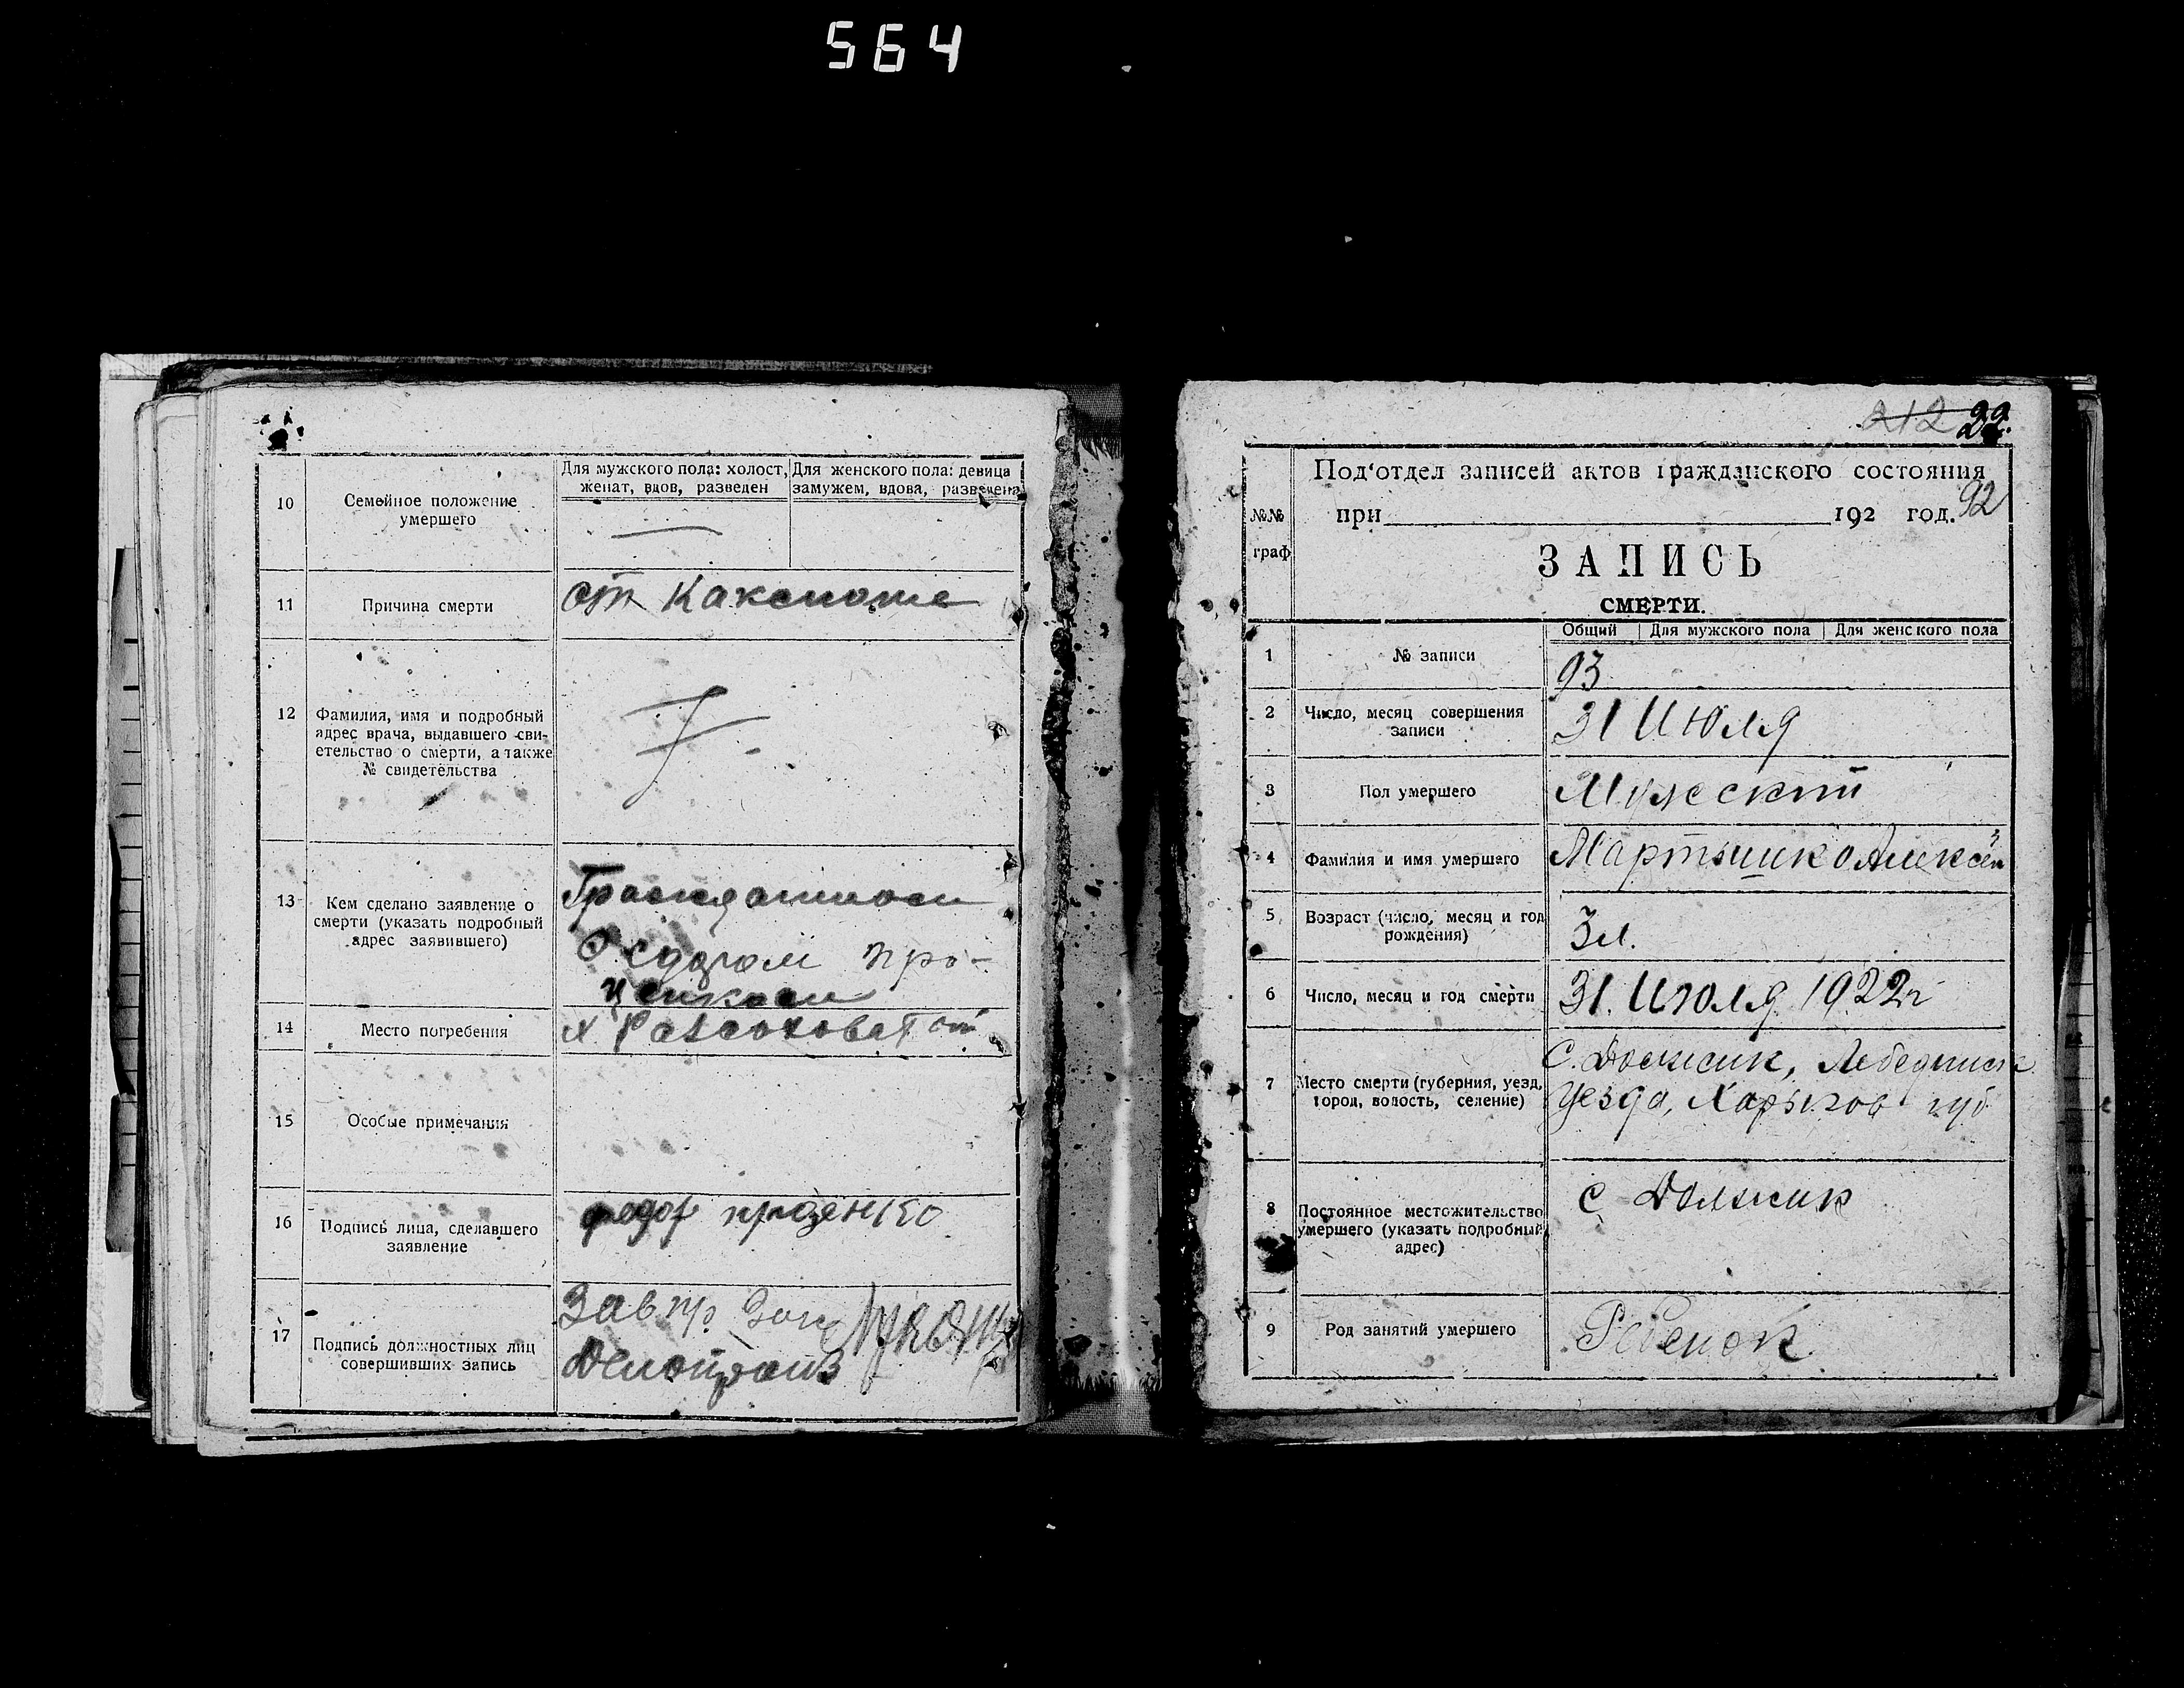 564
10
Семейное положение
умершего
Для мужского пола: холост,
женат, вдов, разведен
Для женского пола: девица
замужем, вдова, разведена
11
Причина смерти
от
12
Фамилия, имя и подробный
адрес врача, выдавшего сви-
етельство о смерти, а также
№ свидетельства
13
Кем сделано заявление о
смерти (указать подробный
адрес заявившего)
Гражданином
Федором Про-
ценком
14
Место погребения
15
Особые примечания
16
Подпись лица, сделавшего
заявление
федор проценко
17
Подпись должностных лиц
совершивших запись
Делопроиз
212 22.
Под'отдел записей актов гражданского состояния
при 192 год. 92
№№
граф
ЗАПИСЬ
СМЕРТИ.
Общий Для мужского пола Для женского пола
1
№ записи
93
2
Число, месяц совершения
записи
31 Июля
3
Пол умершего
Мужский
4
Фамилия и имя умершего
5
Возраст (число, месяц и год
рождения)
6
Число, месяц и год смерти
31. Июля 1922 г
7
Место смерти (губерния, уезд,
город, волость, селение)
С. Должик, Лебединск
Уезда, Харьков губ
8
Постоянное местожительство
умершего (указать подробный
адрес)
с Должик
9
Род занятий умершего
Ребенок.